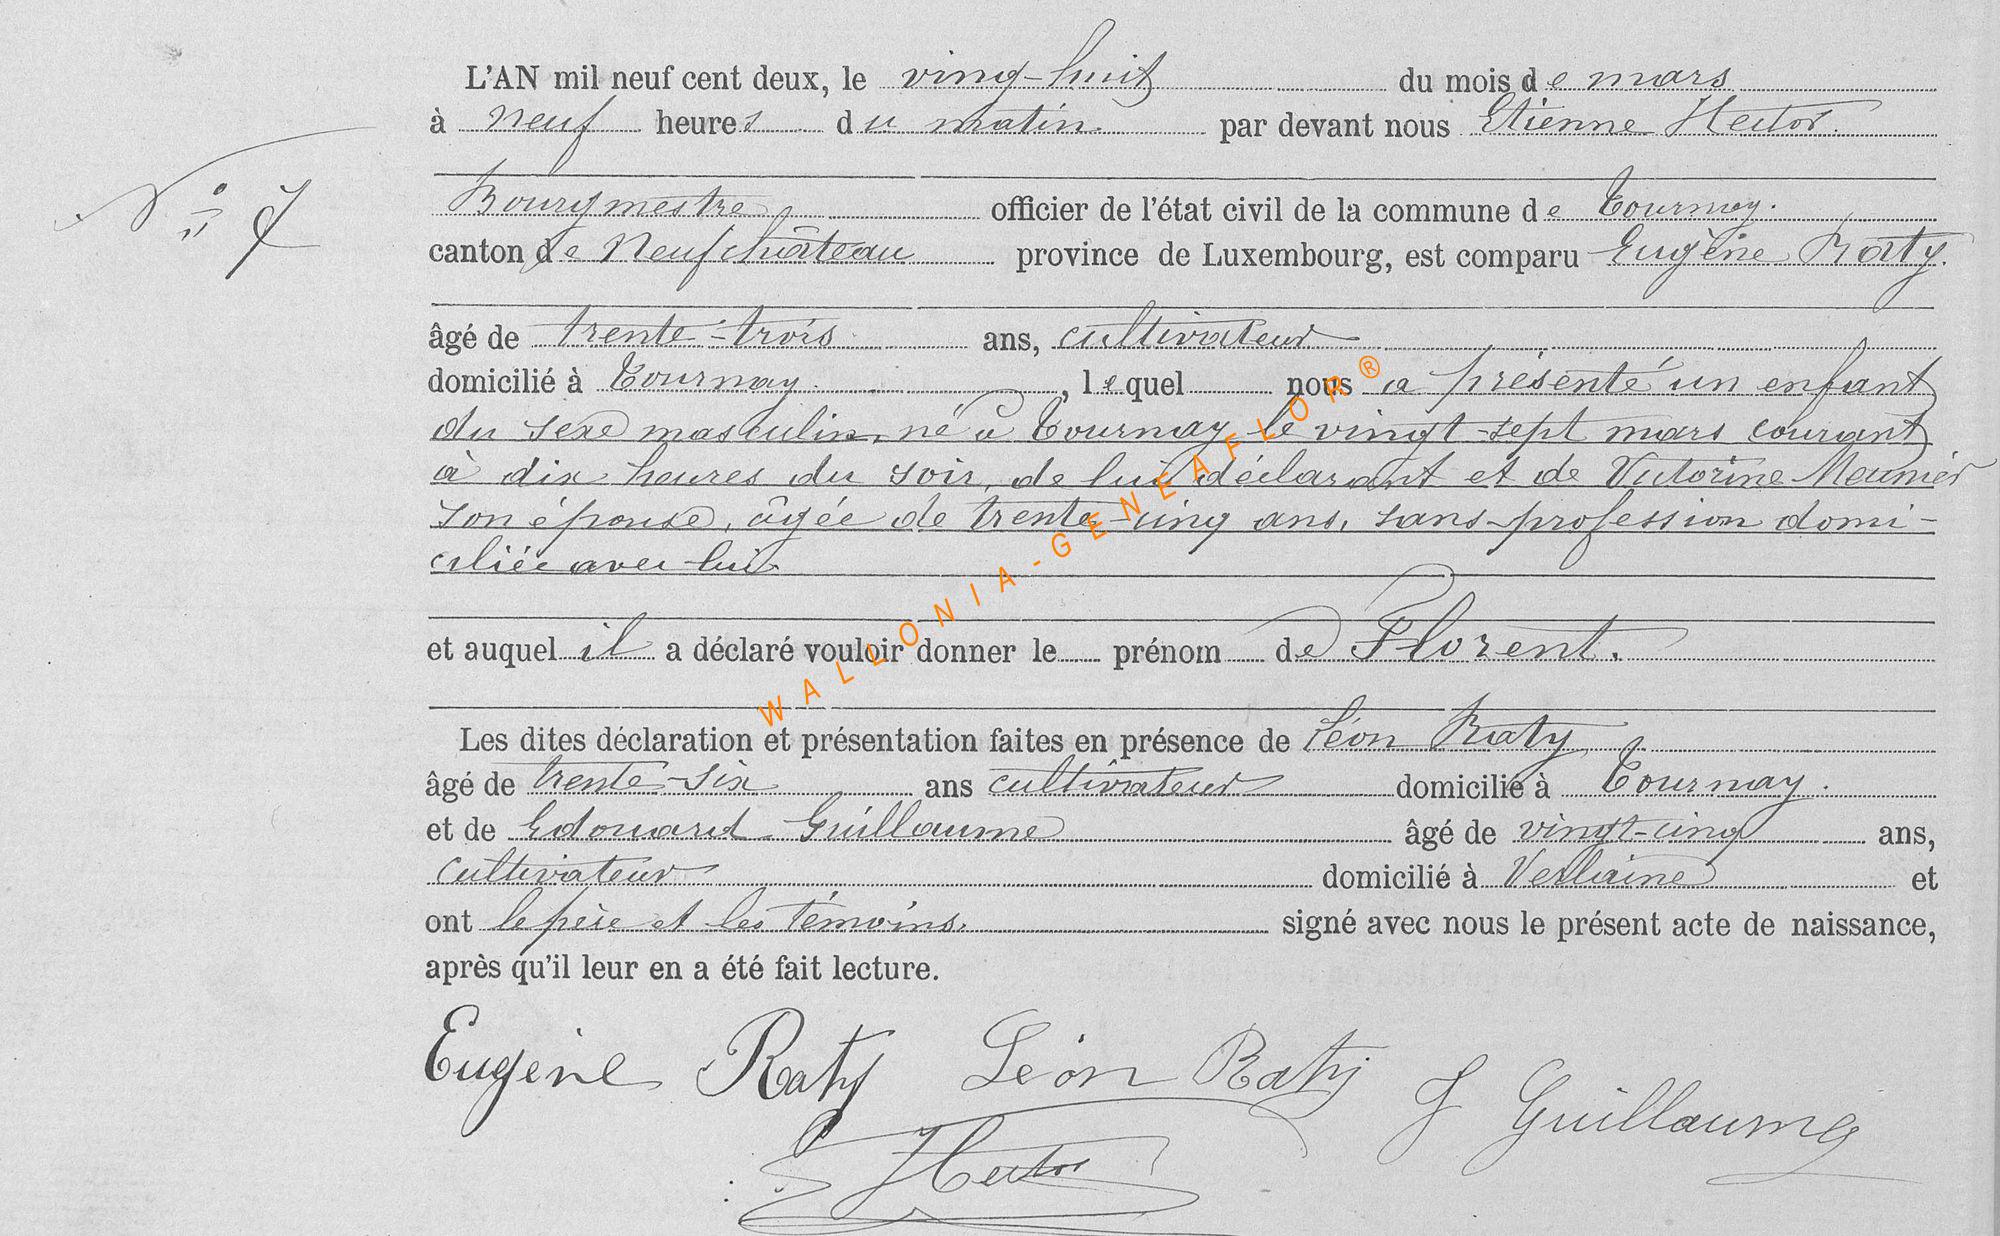 L'AN mil neuf cent deux, le vingt-huit du mois de mars
à neuf heures du matin par devant nous Etienne Hector.
N° 7
Bourgmestre officier de l'état civil de la commune de Tournay.
canton de Neufchâteau province de Luxembourg, est comparu Eugène Raty.
âgé de trente-trois ans, cultivateur
domicilié à Tournay. , lequel nous a présenté un enfant
du sexe masculin, né à Tournay, le vingt-sept mars courant
à dix heures du soir, de lui déclarant et de Victorine Meunier
son épouse, âgée de trente-cinq ans, sans profession domi-
ciliée avec lui.
et auquel il a déclaré vouloir donner le prénom de Florent.
Les dites déclaration et présentation faites en présence de Léon Raty
âgé de trente-six ans cultivateur domicilié à Tournay.
et de Edouard Guillaume âgé de vingt-cinq ans,
cultivateur domicilié à Verlaine et
ont le père et les témoins. signé avec nous le présent acte de naissance,
après qu'il leur en a été fait lecture.
Eugène Raty Léon Raty Guillaume
Hector
WALLONIA-GENEAFLOR®